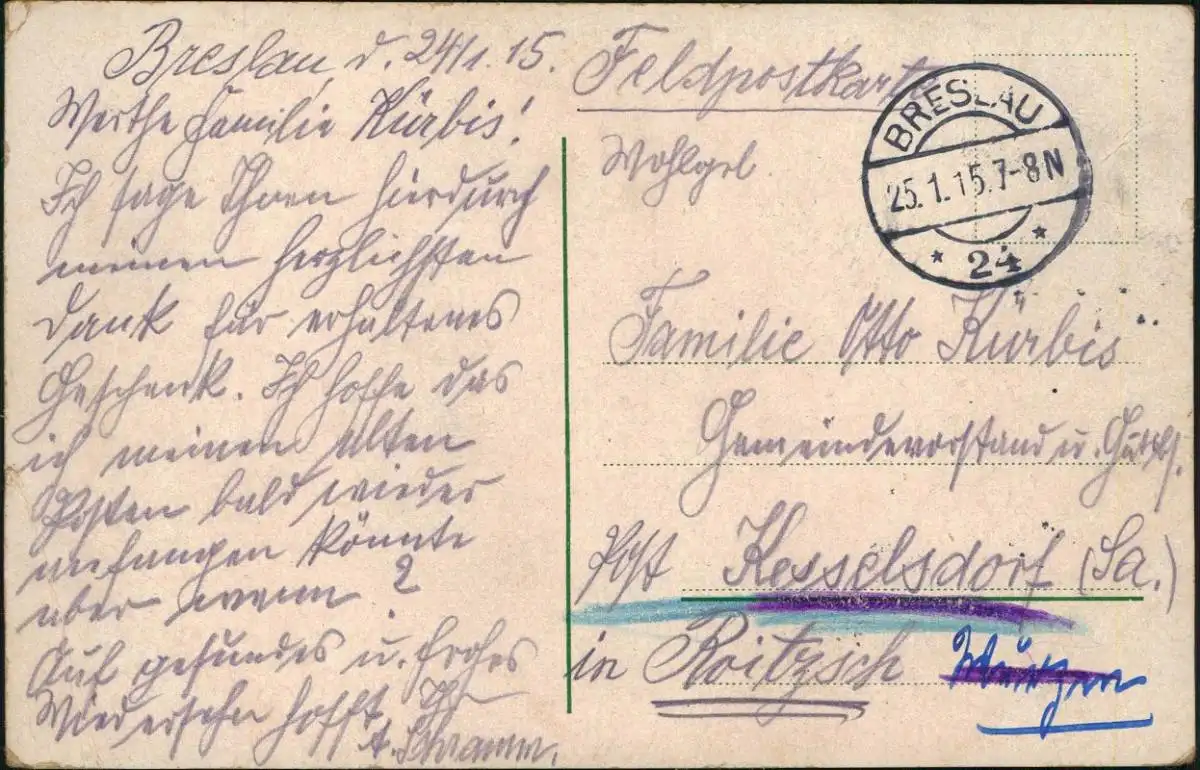 Breslau, d. 24/1. 15.
Werthe Familie Kürbis!
Ich sage Ihnen hierdurch
meinen herzlichsten
Dank für erhaltenes
Geschenk. Ich hoffe das
ich meinen alten
Posten bald wieder
anfangen könnte
aber wann ?
Auf gesundes u. frohes
Wiedersehn hofft Ihr
A. Schramm.
Feldpostkarte
Wohlgeb.
BRESLAU
25.1.15.7-8N
* 24 *
Familie Otto Kürbis
Gemeindevorstand u. Gutsb.
Post Kesselsdorf (Sa.)
in Roitzsch Wurzen